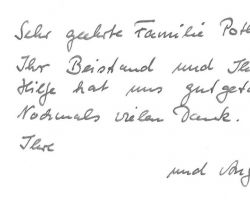 Sehr geehrte Familie Pott
Ihr Beistand und Ih
Hilfe hat uns gutget
Nochmals vielen Dank.
Ihre
und Ang